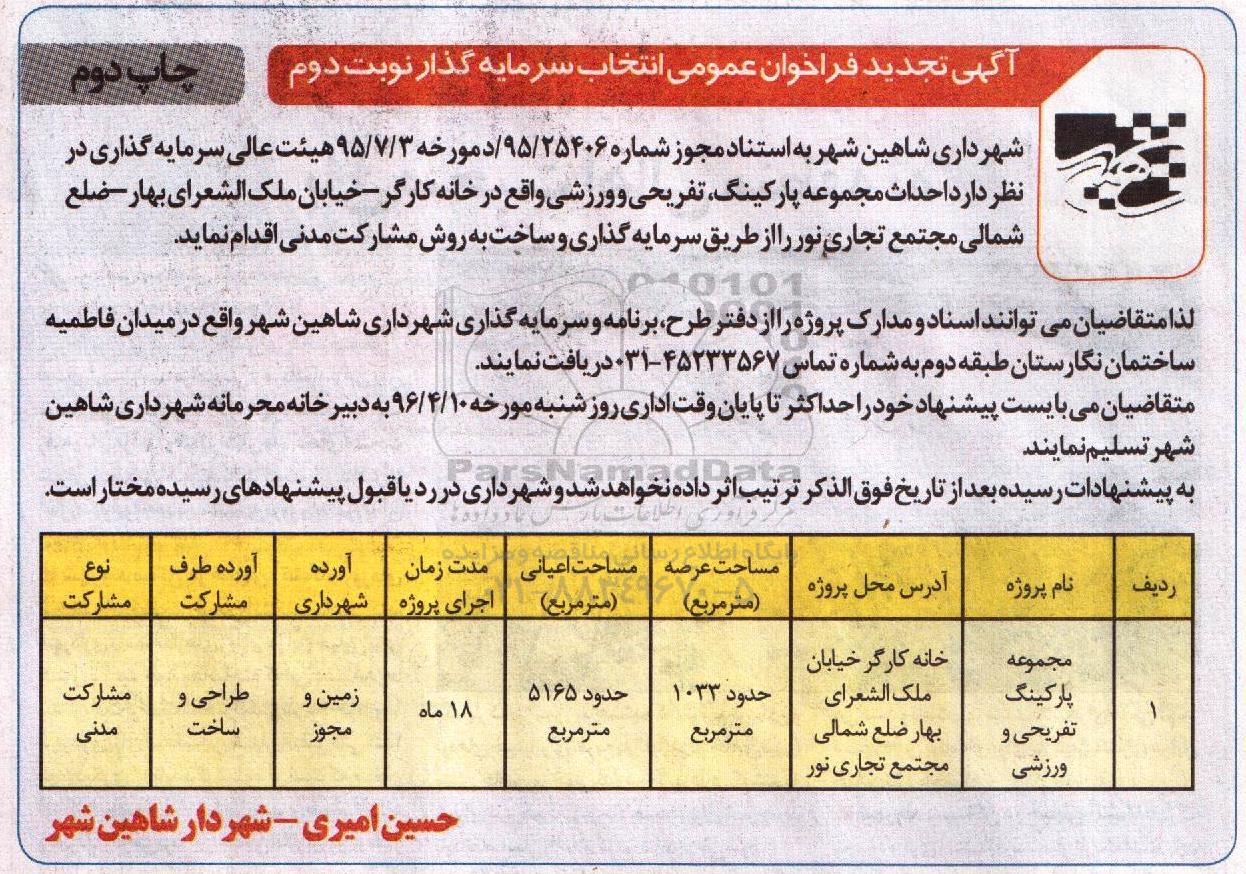 آگهی تجدید فراخوان عمومی انتخاب سرمایه گذار نوبت دوم
چاپ دوم
شهرداری شاهین شهر به استناد مجوز شماره ۹۵/۲۵۴۰۶/د مورخه ۹۵/۷/۳ هیئت عالی سرمایه گذاری در
نظر دارد احداث مجموعه پارکینگ، تفریحی و ورزشی واقع در خانه کارگر – خیابان ملک الشعرای بهار – ضلع
شمالی مجتمع تجاری نور را از طریق سرمایه گذاری و ساخت به روش مشارکت مدنی اقدام نماید.
لذا متقاضیان می توانند اسناد و مدارک پروژه را از دفتر طرح، برنامه و سرمایه گذاری شهرداری شاهین شهر واقع در میدان فاطمیه
ساختمان نگارستان طبقه دوم به شماره تماس ۴۵۲۳۳۵۶۷-۰۳۱ دریافت نمایند.
متقاضیان می بایست پیشنهاد خود را حداکثر تا پایان وقت اداری روز شنبه مورخه ۹۶/۴/۱۰ به دبیرخانه محرمانه شهرداری شاهین
شهر تسلیم نمایند.
به پیشنهادات رسیده بعد از تاریخ فوق الذکر ترتیب اثر داده نخواهد شد و شهرداری در رد یا قبول پیشنهادهای رسیده مختار است.
ParsNamadData
مرکز فرآوری اطلاعات پارس نماد داده ها
پایگاه اطلاع رسانی مناقصه و مزایده
۰۲۱-۸۸۳۴۹۶۷۰-۵
ردیف نام پروژه آدرس محل پروژه مساحت عرصه (مترمربع) مساحت اعیانی (مترمربع) مدت زمان اجرای پروژه آورده شهرداری آورده طرف مشارکت نوع مشارکت
۱ مجموعه پارکینگ تفریحی و ورزشی خانه کارگر خیابان ملک الشعرای بهار ضلع شمالی مجتمع تجاری نور حدود ۱۰۳۳ مترمربع حدود ۵۱۶۵ مترمربع ۱۸ ماه زمین و مجوز طراحی و ساخت مشارکت مدنی
حسین امیری – شهردار شاهین شهر